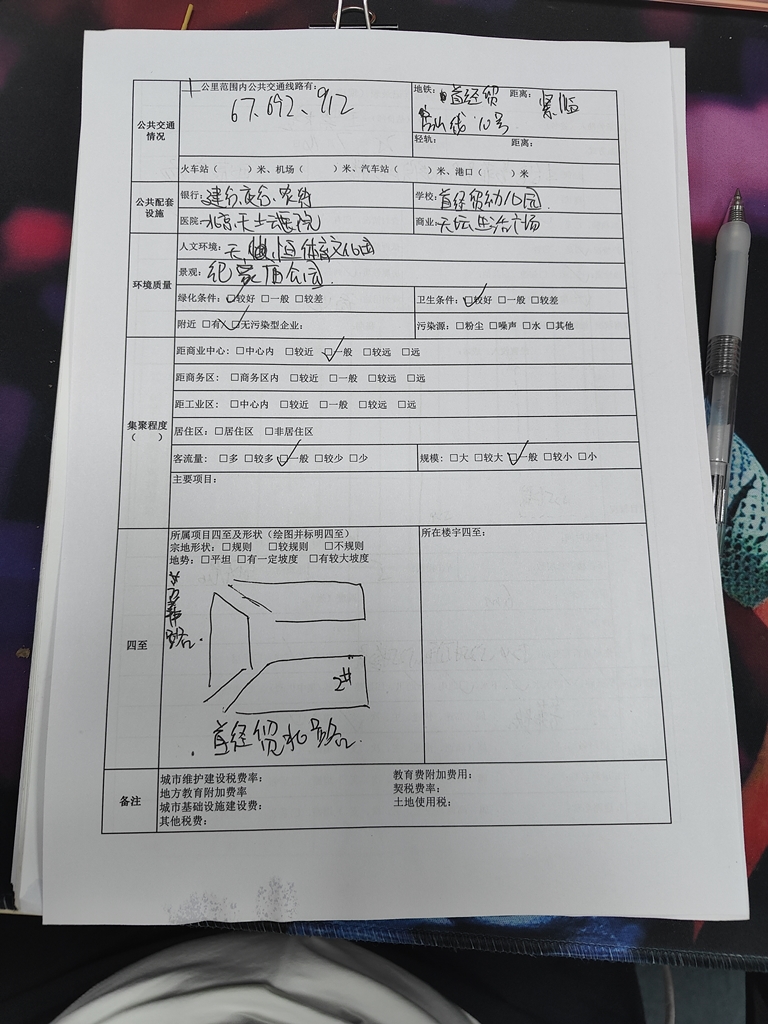 公共交通情况
1公里范围内公共交通线路有:
67、692、912
地铁: 首经贸 距离: 紧临
房山线 10号
轻轨: 距离:
火车站( )米、机场( )米、汽车站( )米、港口( )米
公共配套设施
银行: 建行、农行
学校: 首经贸幼儿园
医院: 北京天士云医院
商业: 天坛生活广场
环境质量
人文环境: 恒体育文化园
景观: 纪家庙公园
绿化条件: ☑较好 □一般 □较差
卫生条件: ☑较好 □一般 □较差
附近 □有 ☑无污染型企业:
污染源: □粉尘 □噪声 □水 □其他
集聚程度( )
距商业中心: □中心内 □较近 ☑一般 □较远 □远
距商务区: □商务区内 □较近 □一般 □较远 □远
距工业区: □中心内 □较近 □一般 □较远 □远
居住区: □居住区 □非居住区
客流量: □多 □较多 ☑一般 □较少 □少
规模: □大 □较大 ☑一般 □较小 □小
主要项目:
四至
所属项目四至及形状(绘图并标明四至)
宗地形状: □规则 □较规则 □不规则
地势: □平坦 □有一定坡度 □有较大坡度
所在楼宇四至:
路
2#
首经贸北路
备注
城市维护建设税费率:
教育费附加费用:
地方教育附加费率
契税费率:
城市基础设施建设费:
土地使用税:
其他税费: